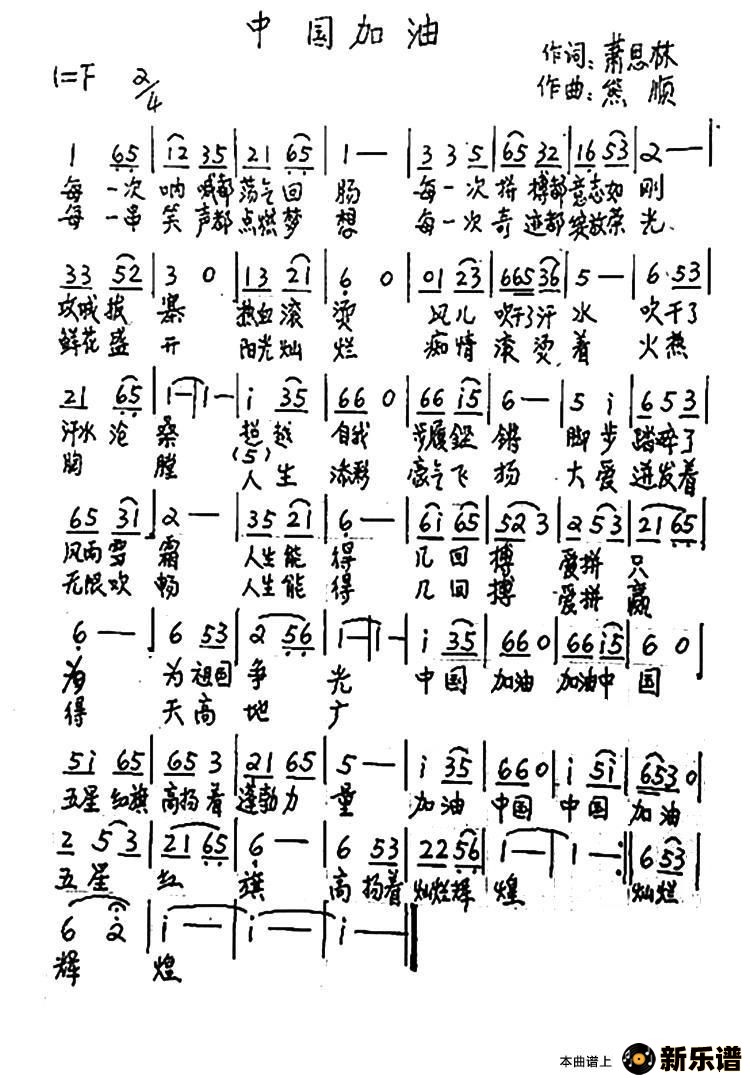 中国加油
作词：萧思林
1=F 2/4 作曲：熊顺
1 65 | 12 35 | 21 65 | 1 — | 3 3 5 | 65 32 | 16 53 | 2 — |
每一次呐喊都荡气回肠 每一次拼搏都意志如刚
每一串笑声都点燃梦想 每一次奇迹都绽放荣光
33 52 | 3 0 | 13 21 | 6 0 | 01 23 | 665 36 | 5 — | 6 53 |
攻城拔寨 热血滚烫 风儿吹干了汗水 吹干了
鲜花盛开 阳光灿烂 痴情滚烫着 火热
21 65 | 1 — | 1 — | i 35 | 66 0 | 66 i5 | 6 — | 5 i | 6 5 3 |
汗水沧桑 超越自我 步履铿锵 脚步踏碎了
(5)
胸膛 人生添彩 豪气飞扬 大爱迸发着
65 31 | 2 — | 35 21 | 6 — | 6i 65 | 52 3 | 2 5 3 | 21 65 |
风雨雪霜 人生能得几回搏 爱拼只
无限欢畅 人生能得几回搏 爱拼赢
6 — | 6 53 | 2 56 | 1 — | 1 — | i 35 | 66 0 | 66 i5 | 6 0 |
为 为祖国争光 中国加油 加油中国
得 天高地广
5i 65 | 65 3 | 21 65 | 5 — | i 35 | 66 0 | i 5i | 653 0 |
五星红旗高扬着蓬勃力量 加油中国 中国加油
2 5 3 | 21 65 | 6 — | 6 53 | 22 56 | 1 — | 1 — :‖ 6 53 |
五星红旗 高扬着灿烂辉煌 灿烂
6 2 | i — | i — | i — ‖
辉煌
本曲谱上 新乐谱